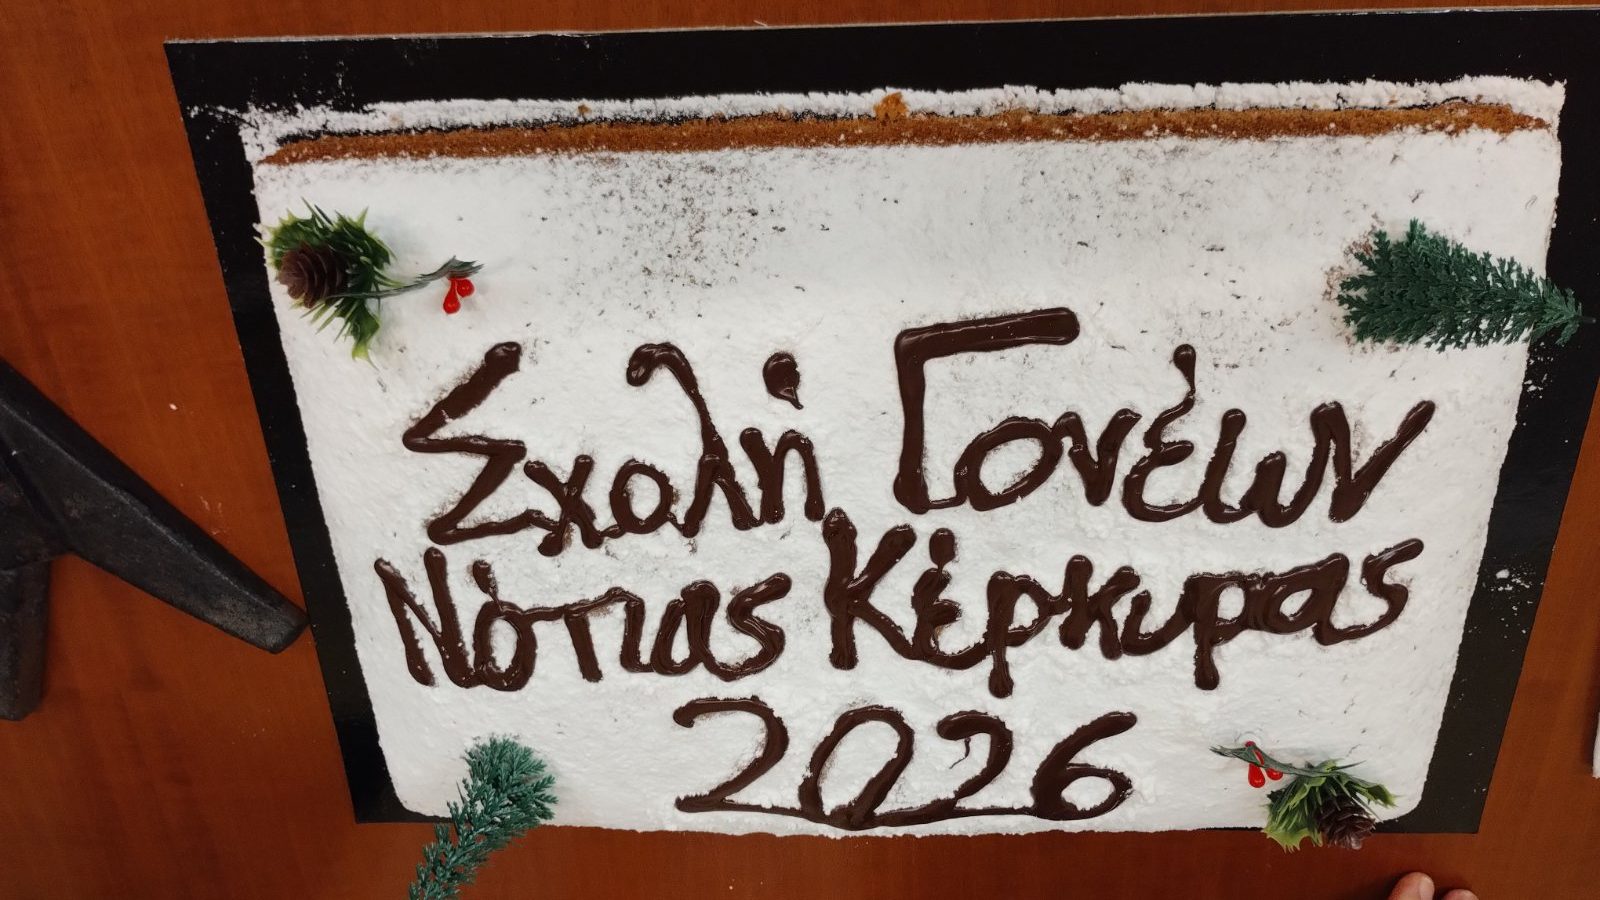 Σχολή Γονέων
Νότιας Κέρκυρας
2026